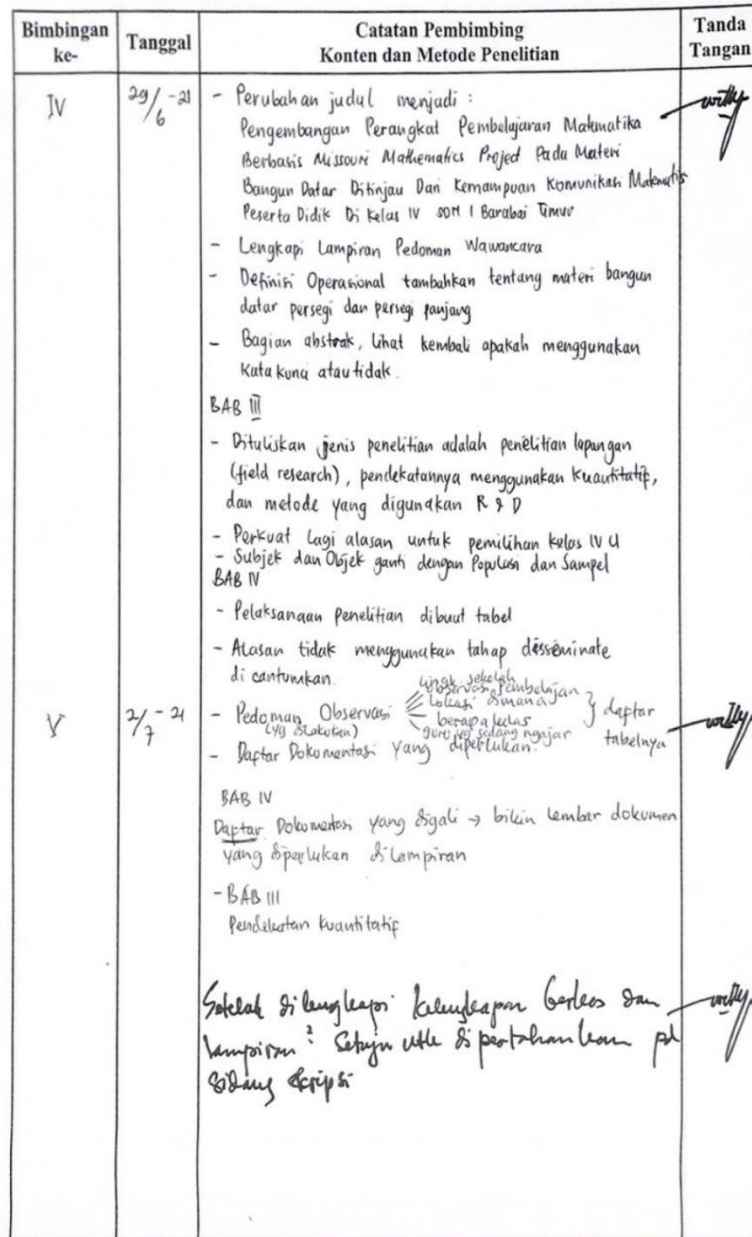 Bimbingan ke-
Tanggal
Catatan Pembimbing
Konten dan Metode Penelitian
Tanda Tangan
IV
29/6 -21
- Perubahan judul menjadi :
Pengembangan Perangkat Pembelajaran Matematika
Berbasis Missouri Mathematics Project Pada Materi
Bangun Datar Ditinjau Dari Kemampuan Komunikasi Matematis
Peserta Didik Di Kelas IV SDN 1 Barabai Timur
- Lengkapi Lampiran Pedoman Wawancara
- Definisi Operasional tambahkan tentang materi bangun
datar persegi dan persegi panjang
- Bagian abstrak, lihat kembali apakah menggunakan
kata kunci atau tidak.
BAB III
- Dituliskan jenis penelitian adalah penelitian lapangan
(field research), pendekatannya menggunakan kuantitatif,
dan metode yang digunakan R & D
- Perkuat lagi alasan untuk pemilihan kelas IV U
- Subjek dan Objek ganti dengan Populasi dan Sampel
BAB IV
- Pelaksanaan penelitian dibuat tabel
- Alasan tidak menggunakan tahap disseminate
di cantumkan.
V
2/7 -21
- Pedoman Observasi
(yg dilakukan)
lingk sekolah
observasi pembelajan
lokasi dimana
berapa kelas
guru yg sedang ngajar
} daftar
tabelnya
- Daftar Dokumentasi yang diperlukan.
BAB IV
Daftar Dokumentasi yang digali → bikin lembar dokumen
yang diperlukan di lampiran
- BAB III
Pendekatan kuantitatif
Setelah dilengkapi kelengkapan berkas dan
lampiran². Setuju utk dipertahankan pd
sidang skripsi